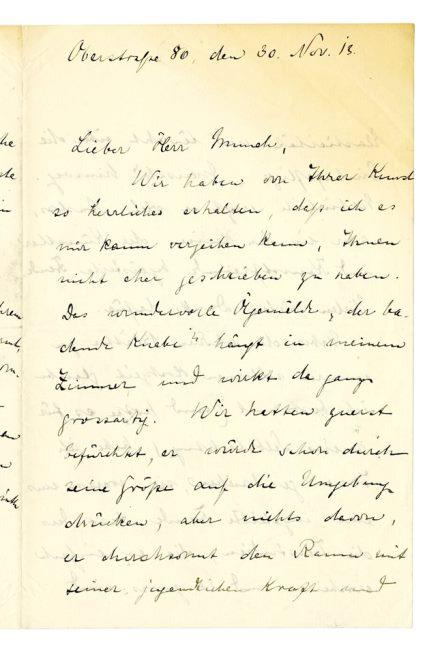 Oberstraße 80, den 30. Nov. 13.
Lieber Herr Munch,
Wir haben von Ihrer Kunst
so herrliches erhalten, daß ich es
mir kaum verzeihen kann, Ihnen
nicht eher geschrieben zu haben.
Das wundervolle Ölgemälde, „der ba-
dende Knabe“ hängt in meinem
Zimmer und wirkt da ganz
grossartig. Wir hatten zuerst
befürchtet, er würde schon durch
seine Größe auf die Umgebung
drücken, aber nichts davon,
er durchsonnt den Raum mit
seiner jugendlichen Kraft und